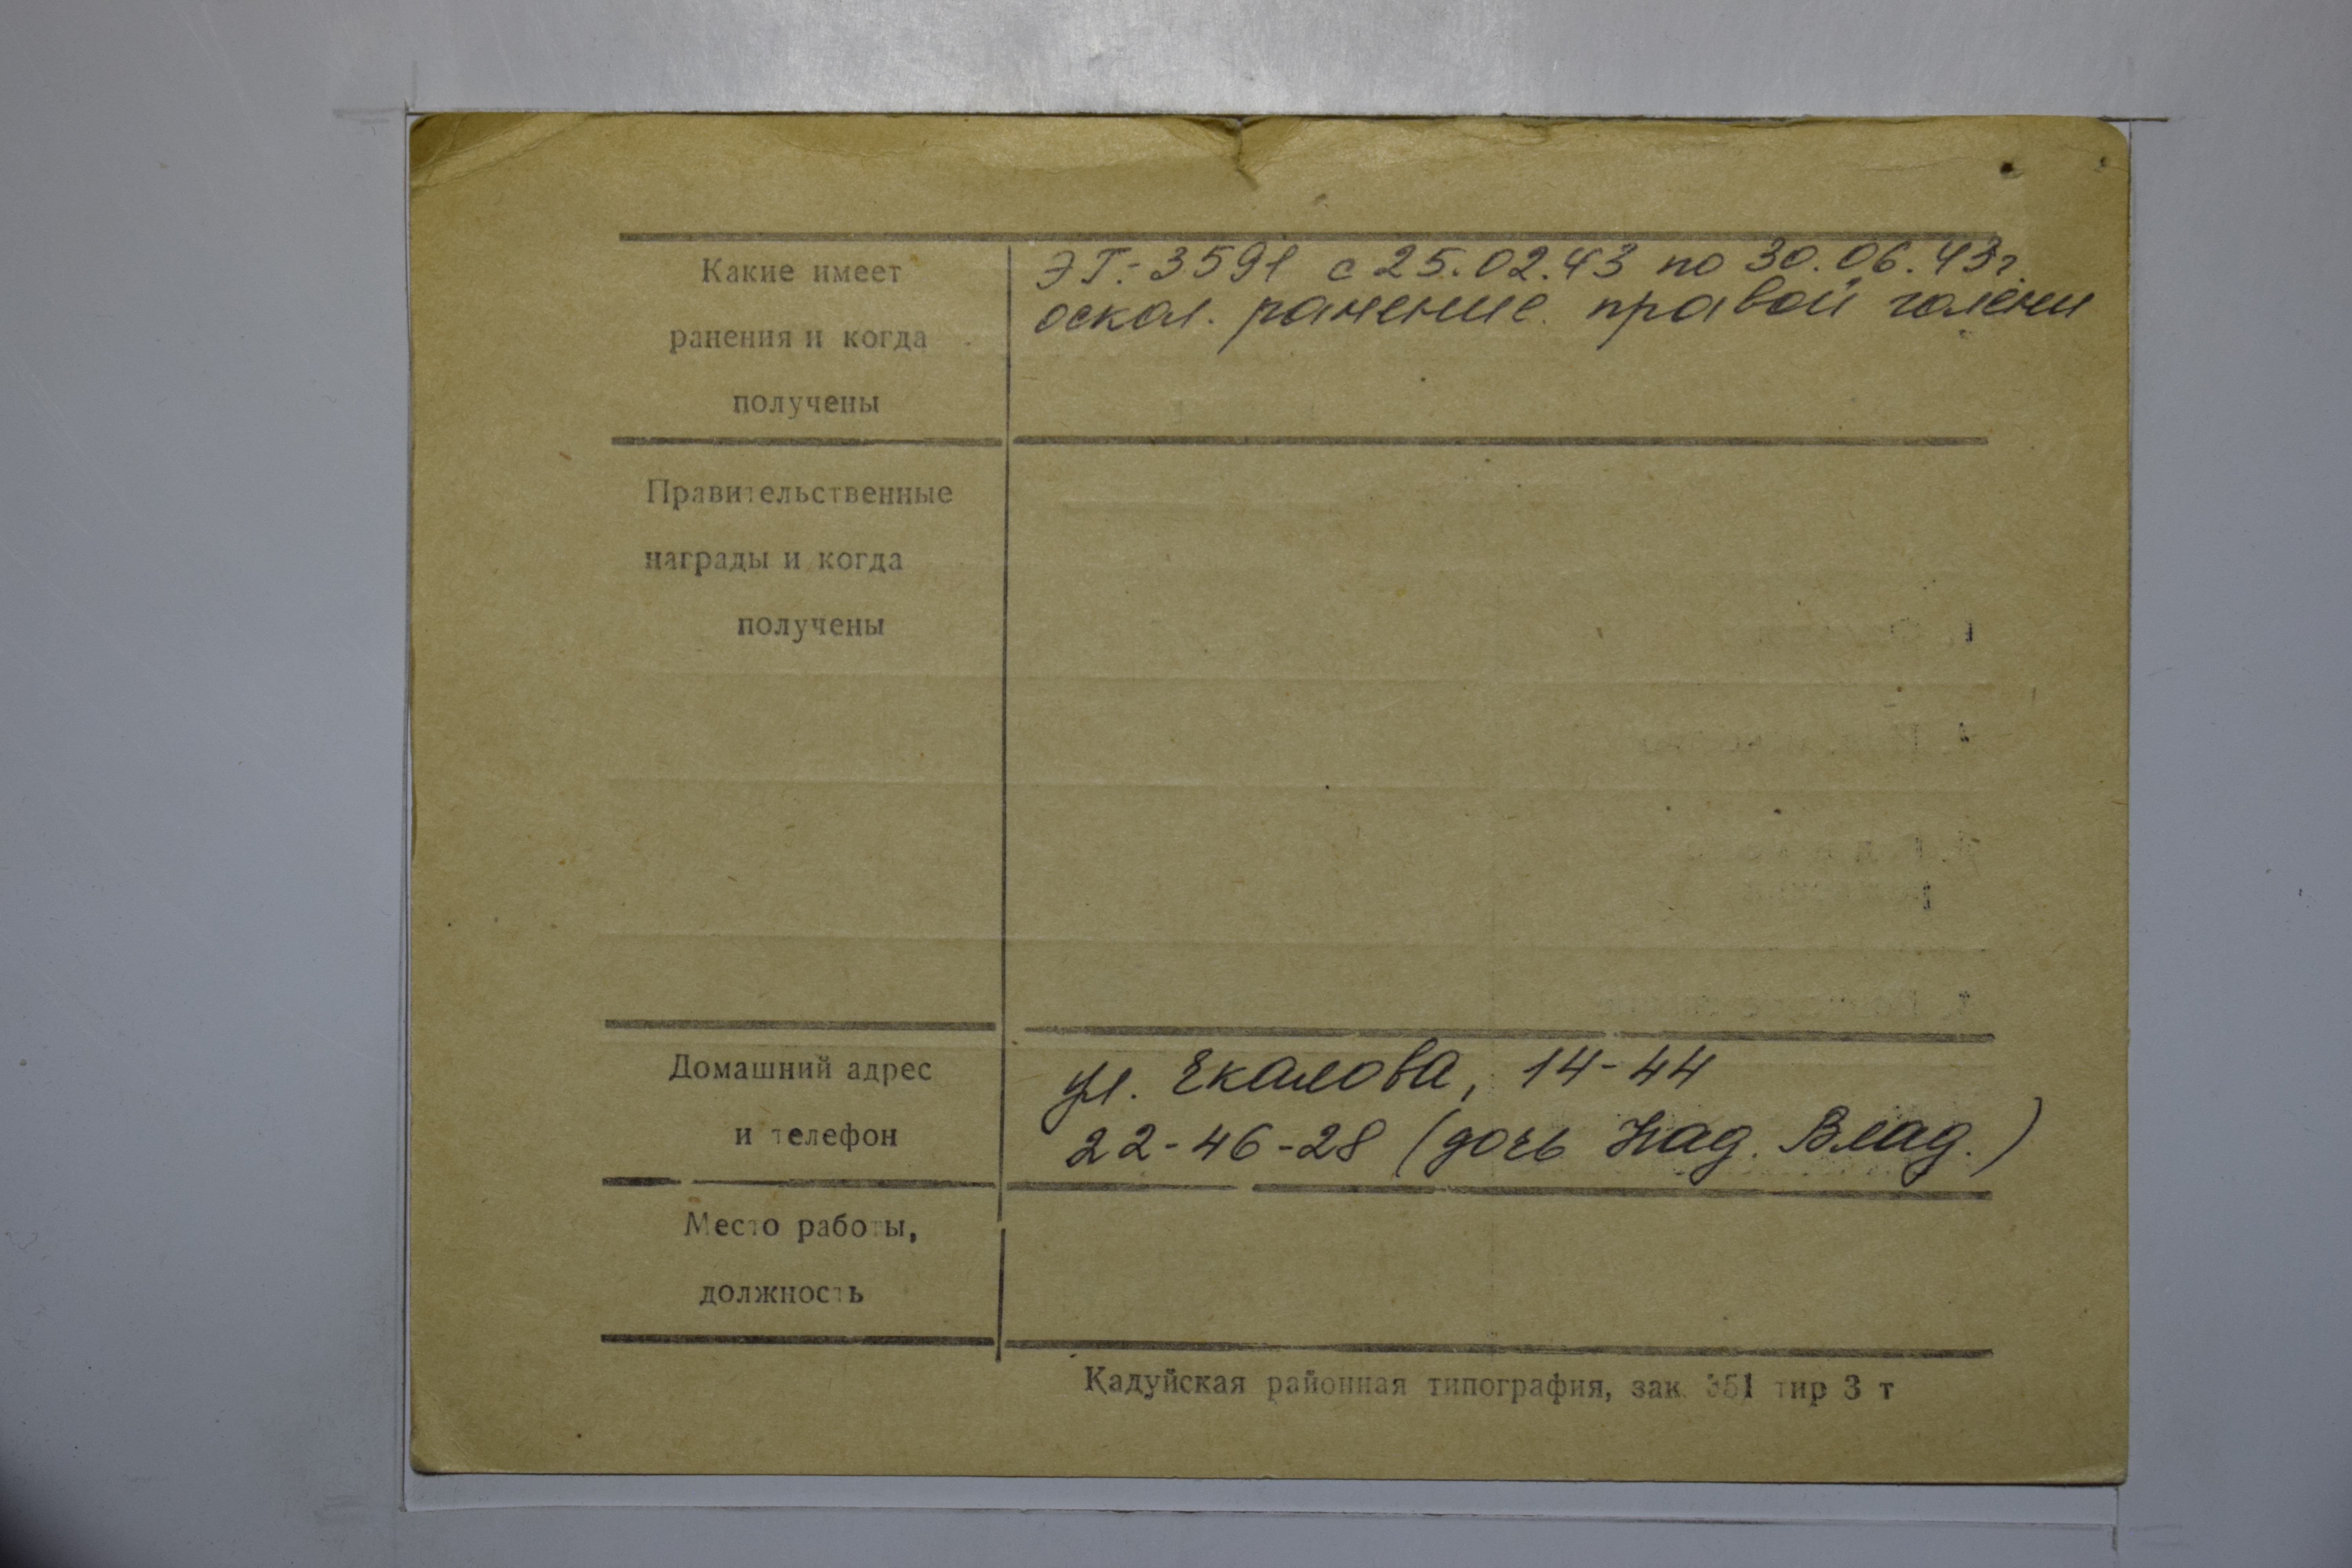 Какие имеет
ранения и когда
получены
ЭГ-3591 с 25.02.43 по 30.06.43г.
оскол. ранение правой голени
Правительственные
награды и когда
получены
Домашний адрес
и телефон
ул. Чкалова, 14-44
22-46-28 (дочь Над. Влад.)
Место работы,
должность
Кадуйская районная типография, зак. 351 тир 3 т